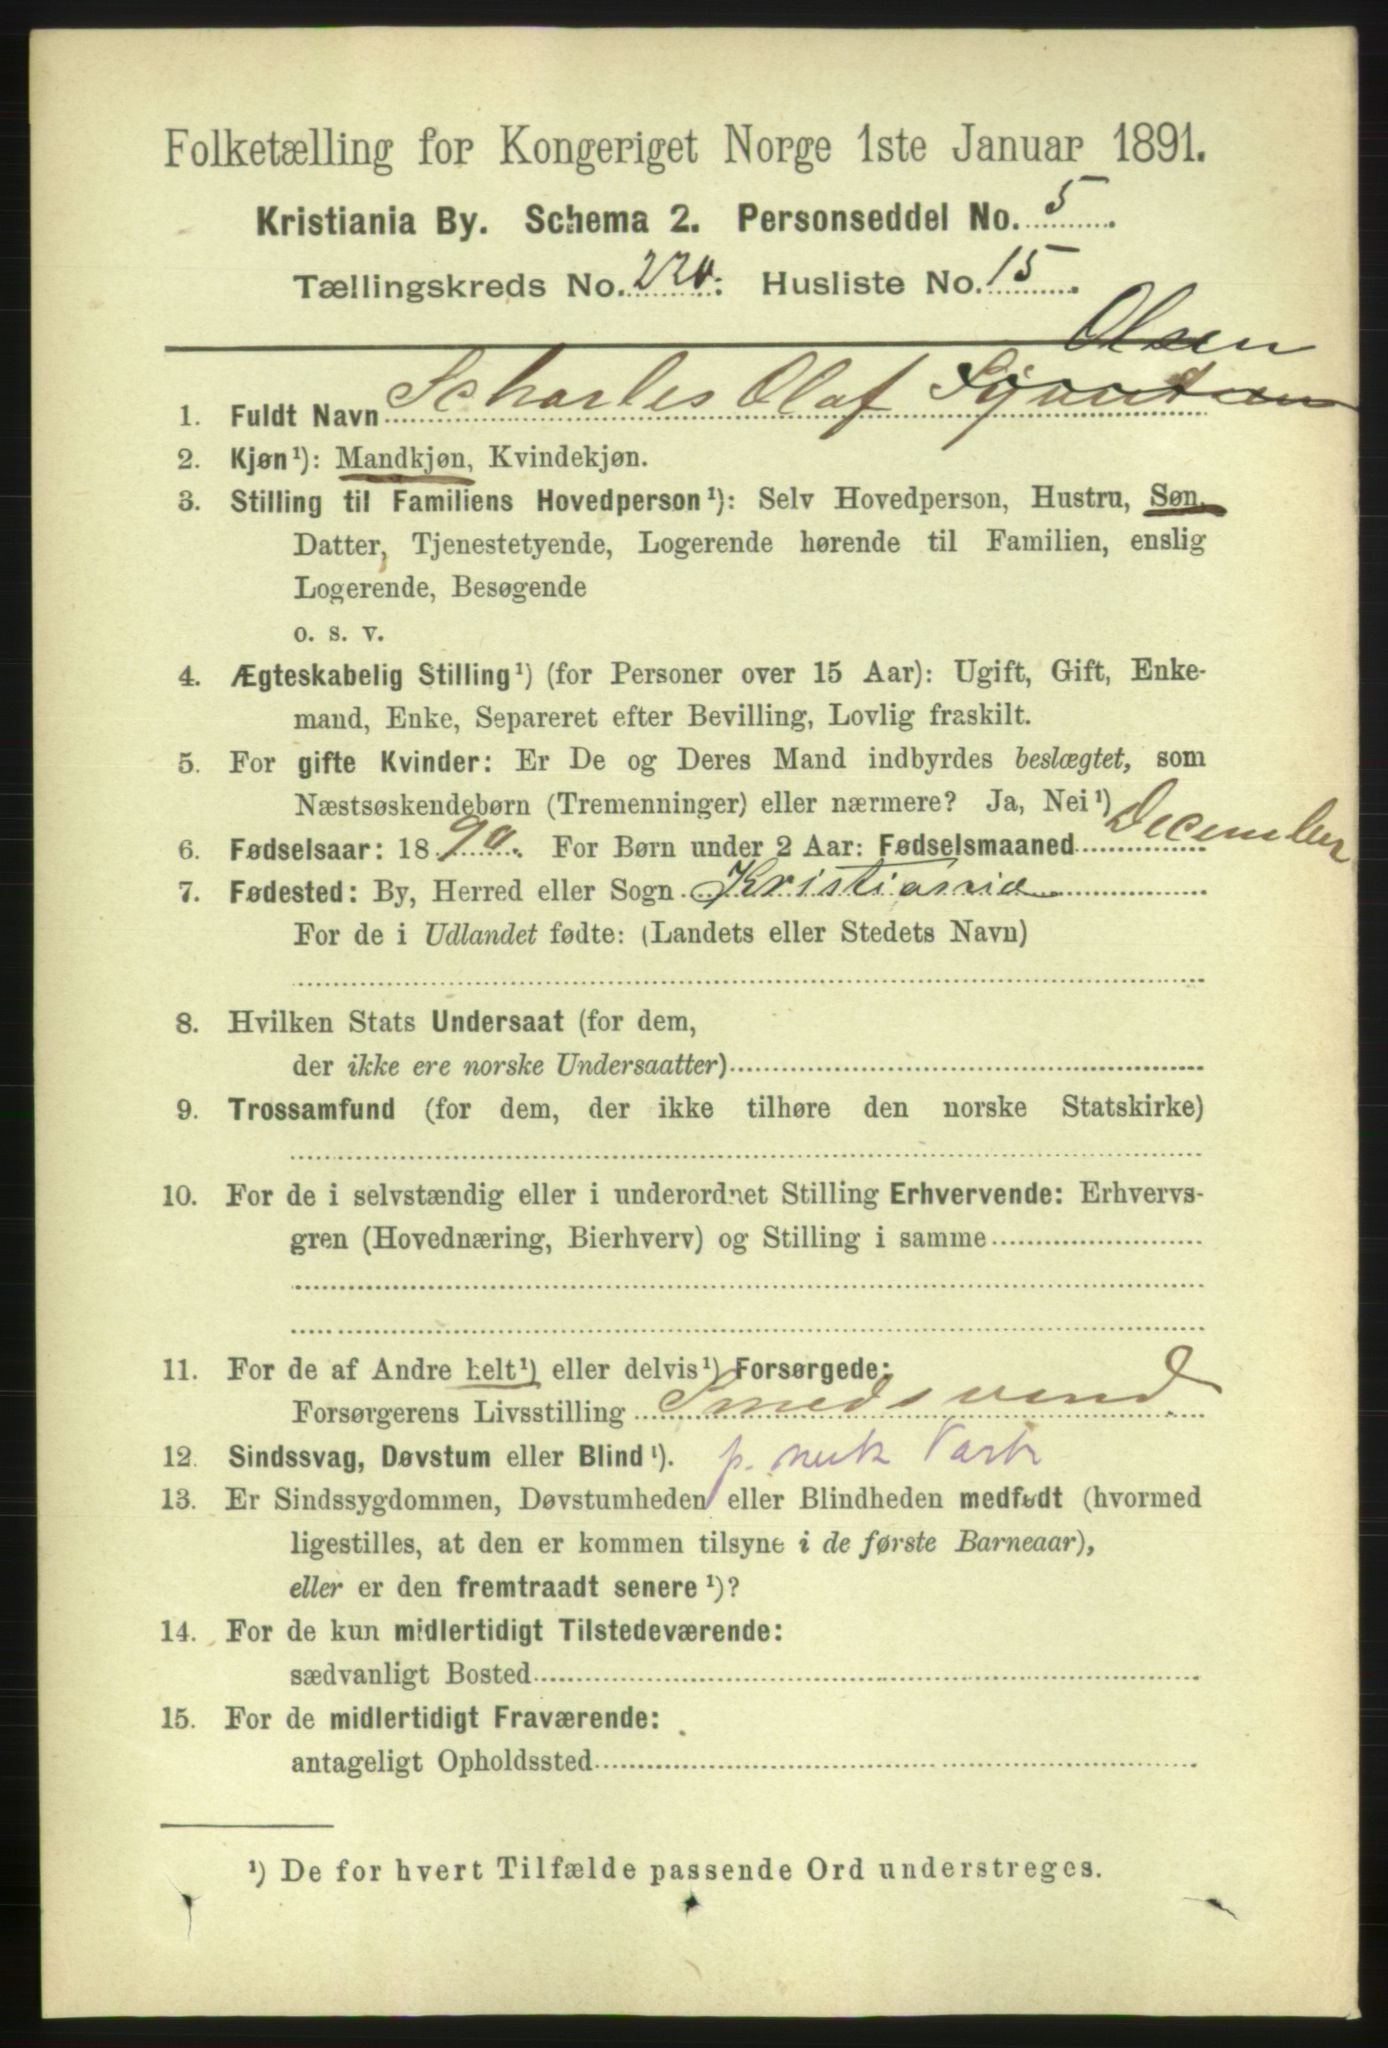 Folketælling for Kongeriget Norge 1ste Januar 1891.
Kristiania By. Schema 2. Personseddel No. 5
Tællingskreds No. 220. Husliste No. 15
Olsen
1. Fuldt Navn Scharles Olaf
2. Kjøn¹): Mandkjøn, Kvindekjøn.
3. Stilling til Familiens Hovedperson¹): Selv Hovedperson, Hustru, Søn,
Datter, Tjenestetyende, Logerende hørende til Familien, enslig
Logerende, Besøgende
o. s. v.
4. Ægteskabelig Stilling¹) (for Personer over 15 Aar): Ugift, Gift, Enke-
mand, Enke, Separeret efter Bevilling, Lovlig fraskilt.
5. For gifte Kvinder: Er De og Deres Mand indbyrdes beslægtet, som
Næstsøskendebørn (Tremenninger) eller nærmere? Ja, Nei¹)
6. Fødselsaar: 1890. For Børn under 2 Aar: Fødselsmaaned December
7. Fødested: By, Herred eller Sogn Kristiania
For de i Udlandet fødte: (Landets eller Stedets Navn)
8. Hvilken Stats Undersaat (for dem,
der ikke ere norske Undersaatter)
9. Trossamfund (for dem, der ikke tilhøre den norske Statskirke)
10. For de i selvstændig eller i underordnet Stilling Erhvervende: Erhvervs-
gren (Hovednæring, Bierhverv) og Stilling i samme
11. For de af Andre helt¹) eller delvis¹) Forsørgede:
Forsørgerens Livsstilling Smedsvend
12. Sindssvag, Døvstum eller Blind¹). p. mek Værk
13. Er Sindssygdommen, Døvstumheden eller Blindheden medfødt (hvormed
ligestilles, at den er kommen tilsyne i de første Barneaar),
eller er den fremtraadt senere¹)?
14. For de kun midlertidigt Tilstedeværende:
sædvanligt Bosted
15. For de midlertidigt Fraværende:
antageligt Opholdssted
¹) De for hvert Tilfælde passende Ord understreges.